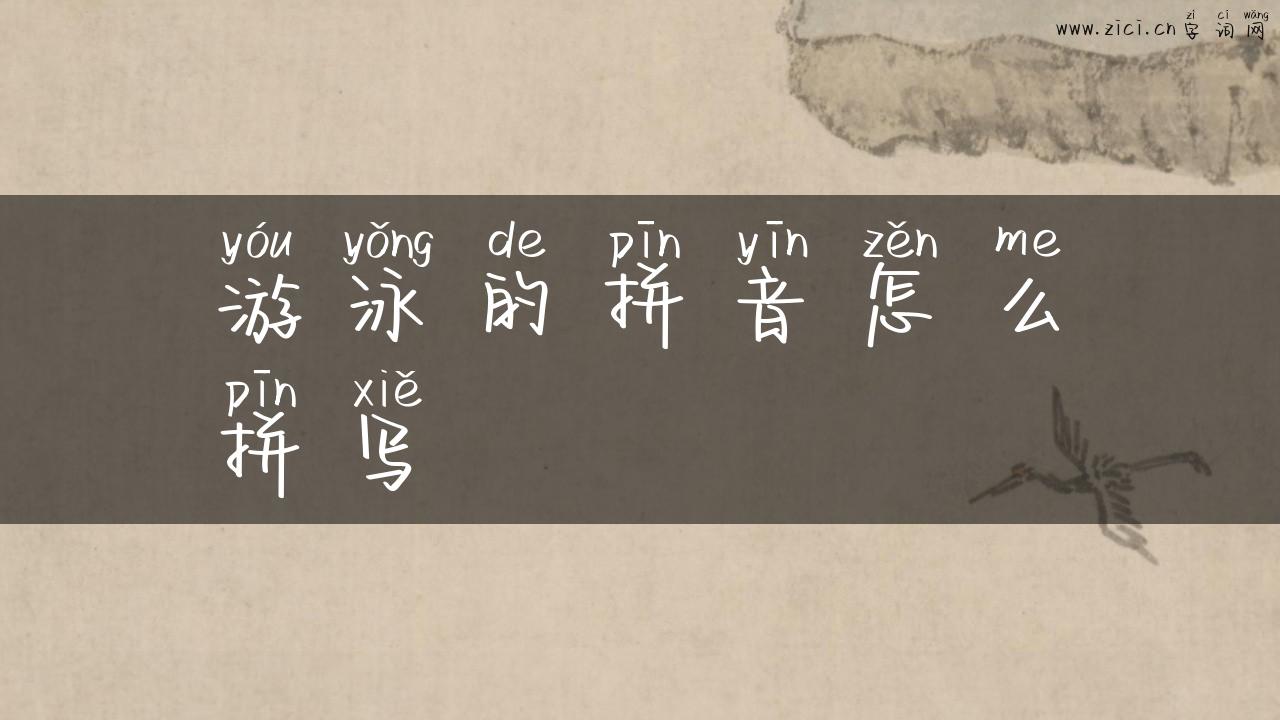 zì cí wǎng
www.zici.cn 字词网
yóu yǒng de pīn yīn zěn me
游泳的拼音怎么
pīn xiě
拼写